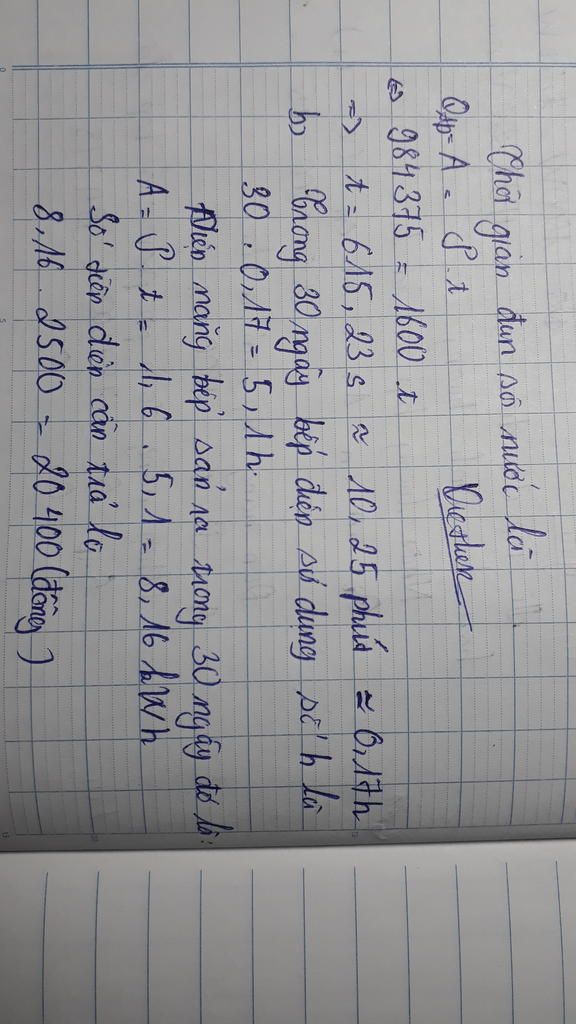 Thời gian đun số nước là
Qtp = A = P.t
Duchuk
⇔ 984375 = 1600 t
=> t = 615,23 s ≈ 10,25 phút ≈ 0,17h
b, Trong 30 ngày bếp điện sử dụng số h là
30 . 0,17 = 5,1h.
Điện năng bếp sản ra trong 30 ngày đó là:
A = P.t = 1,6 . 5,1 = 8,16 kWh
Số tiền điện cần trả là
8,16 . 2500 = 20400 (đồng)